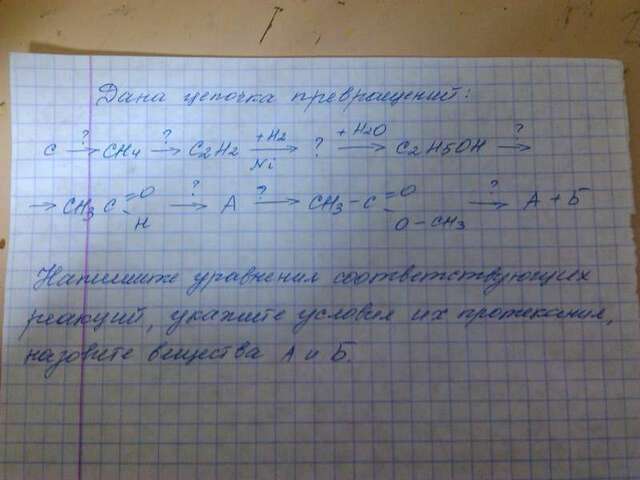 Дана цепочка превращений:
C ?→ CH4 ?→ C2H2 +H2→Ni ? +H2O→ C2H5OH ?→
→ CH3 C =O -H ?→ A ?→ CH3-C =O O-CH3 ?→ A+Б
Напишите уравнения соответствующих
реакций, укажите условия их протекания,
назовите вещества А и Б.